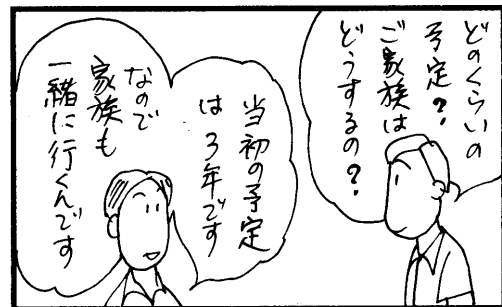 どのくらいの
予定?
ご家族は
どうするの?
当初の予定
は3年です
なので
家族も
一緒に行くんです